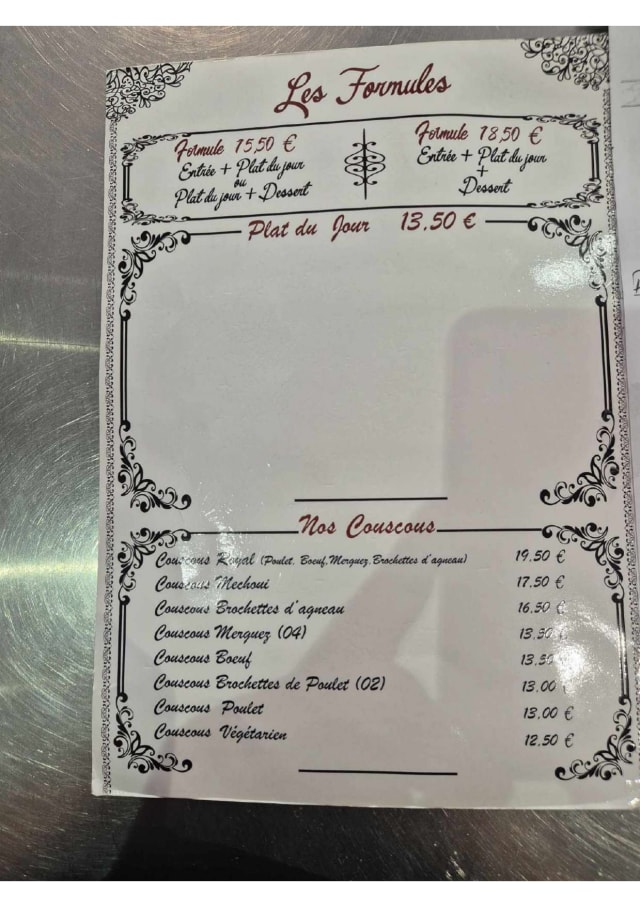 Les Formules
Formule 15,50 €
Entrée + Plat du jour
ou
Plat du jour + Dessert
Formule 18,50 €
Entrée + Plat du jour
+
Dessert
Plat du Jour 13.50 €
Nos Couscous
Couscous Royal (Poulet, Boeuf,Merguez,Brochettes d'agneau) 19.50 €
Couscous Mechoui 17.50 €
Couscous Brochettes d'agneau 16.50 €
Couscous Merguez (04) 13.50 €
Couscous Boeuf 13.50 €
Couscous Brochettes de Poulet (02) 13.00 €
Couscous Poulet 13.00 €
Couscous Végétarien 12.50 €